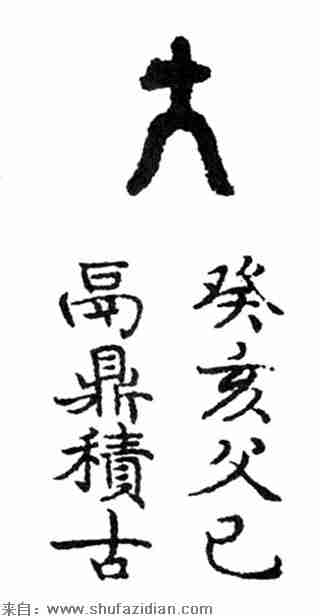 大
癸亥父己
鬲鼎積古
来自：www.shufazidian.com